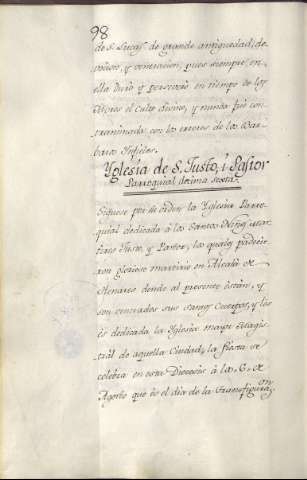 98
de S. Lucas de grande antiguedad, de-
vocion, y veneracion, pues siempre en
ella duró y perseveró en tiempo de los
Moros el culto divino, y nunca fué con-
taminada con los errores de los Bar-
baros Infieles.
Yglesia de S. Iusto, i Pastor
Parroquial decima sexta
Siguese por su orden la Yglesia Parro-
quial dedicada á los Santos Niños mar-
tires Iusto, y Pastor, los quales padecie-
ron glorioso martirio en Alcalá de
Henares donde al presente están, y
son venerados sus santos Cuerpos, y les
és dedicada la Yglesia mayor Magis-
trál de aquella Ciudad, la fiesta se
celebra en esta Diocesis á los 6. de
Agosto que és el dia de la Transfiguraon